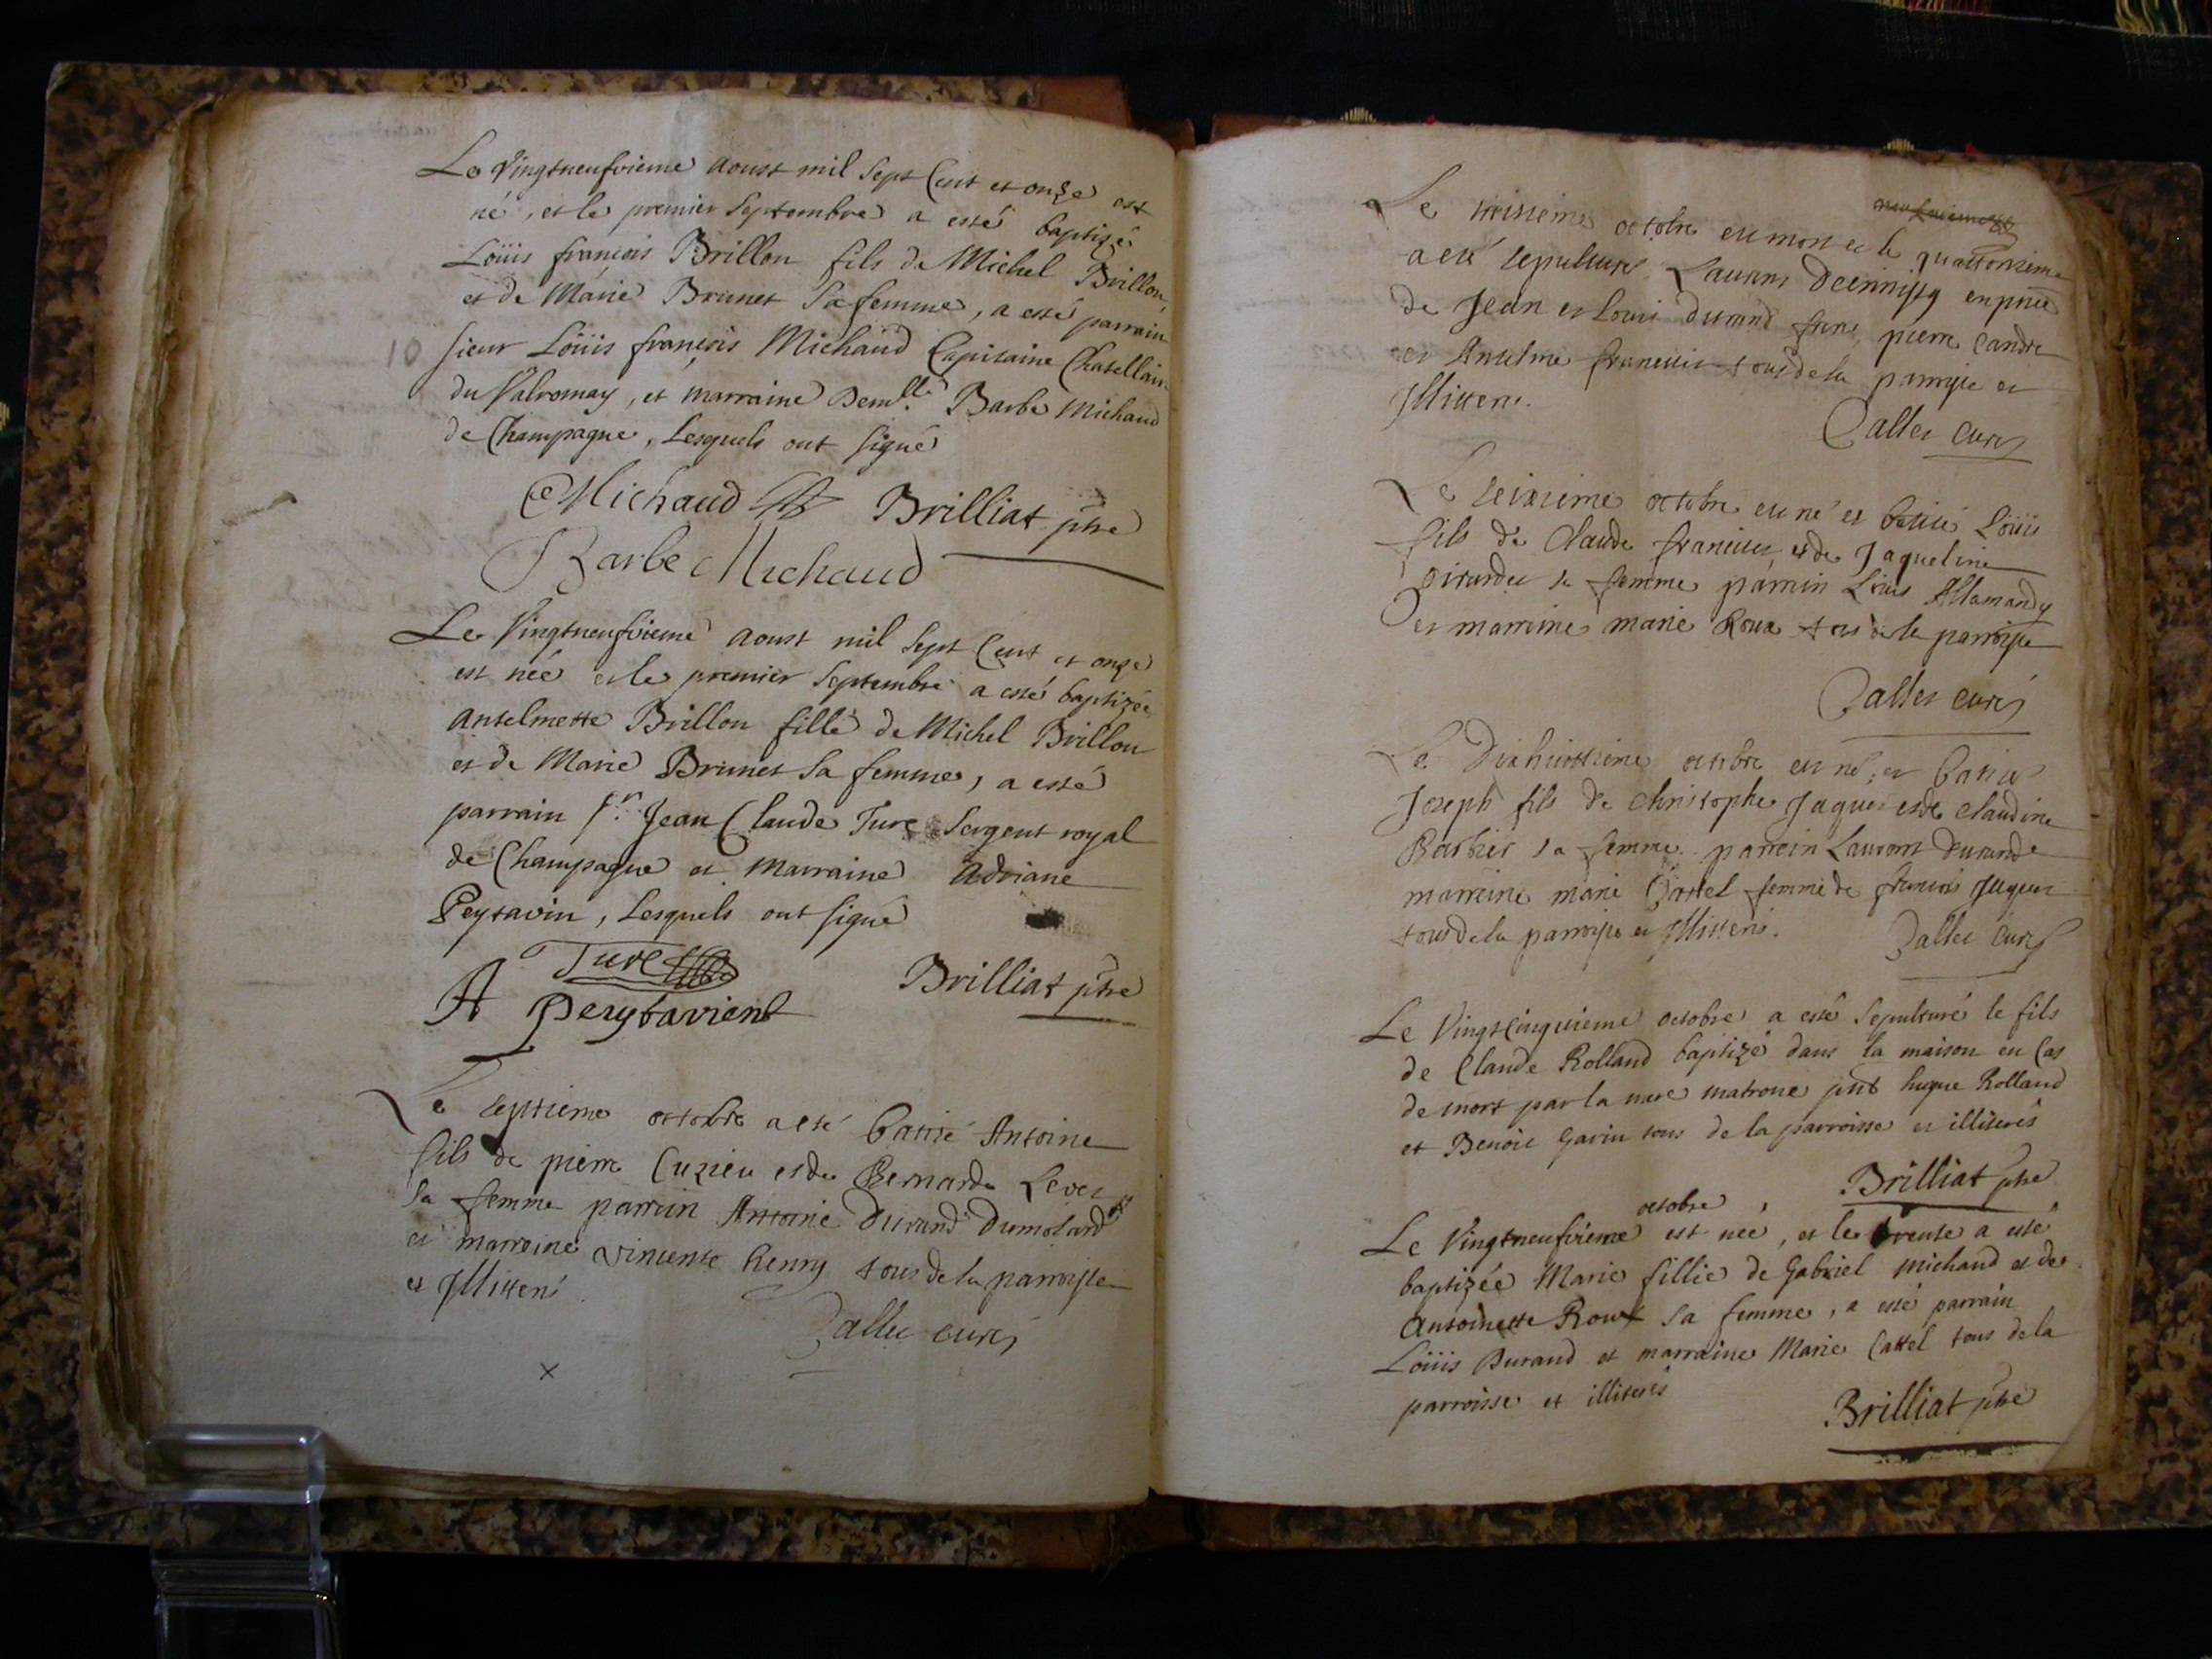 Le Vingtneufvieme aoust mil sept Cent et onze est
né, et le premier Septembre a esté baptizé
Loüis françois Brillon fils de Michel Brillon,
et de Marie Brunet Sa femme, a esté parrain
10
sieur Loüis françois Michaud Capitaine Chatellain
du Valromay, et marraine Demlle Barbe Michaud
de Champagne, Lesquels ont signé
Michaud Brilliat ptre
Barbe Michaud
Le Vingtneufvieme aoust mil sept Cent et onze
est née et le premier Septembre a esté baptizée
antelmette Brillon fille de Michel Brillon
et de Marie Brunet Sa femme, a esté
parrain sr. Jean Claude Ture Sergent royal
de Champagne et marraine adriane
Peytavin, Lesquels ont signé
Ture
Brilliat ptre
A Peeytavient
Le septieme octobre a esté batisé Antoine
fils de pierre Cuzieu et de Bernarde
sa femme parrein Antoine Durand Dumolard
et marreine vincente henry tous de la parroisse
et Illiteré
Salles curé
Le octobre est mort et le quattorsieme
a esté sepulturé Laurens en pnce
de Jean et Louis durand frere, pierre
et Antelme francillie tous de la parroisse et
Illiteré.
Salles curé
Le seizieme octobre est né et batisé Loüis
fils de Claude et de Jaqueline
girardet sa femme parrein Louis Allamand
et marreine marie Roux tous de la parroisse
Salles curé
Le Dixhuittieme octobre est né, et batisé
Joseph fils de christophe Jaques et de claudine
Barbier sa femme parrein Laurent durand et
marreine marie Cattel femme de francois Jaques
tous de la parroisse et Illiteré.
Salles curé
Le Vingtcinquieme octobre a esté Sepulturé le fils
de Claude Rolland baptizé dans la maison en Cas
de mort par la mere matrone pnt hugue Rolland
et Benoit Gavin tous de la parroisse et illiterés
Brilliat ptre
octobre
Le Vingtneufvieme est née, et le trente a esté
baptizée Marie fillie de Gabriel michaud et de
antoinette Roux Sa femme, a esté parrain
Loüis Durand et marraine Marie Cattel tous de la
parroisse et illiterés
Brilliat ptre